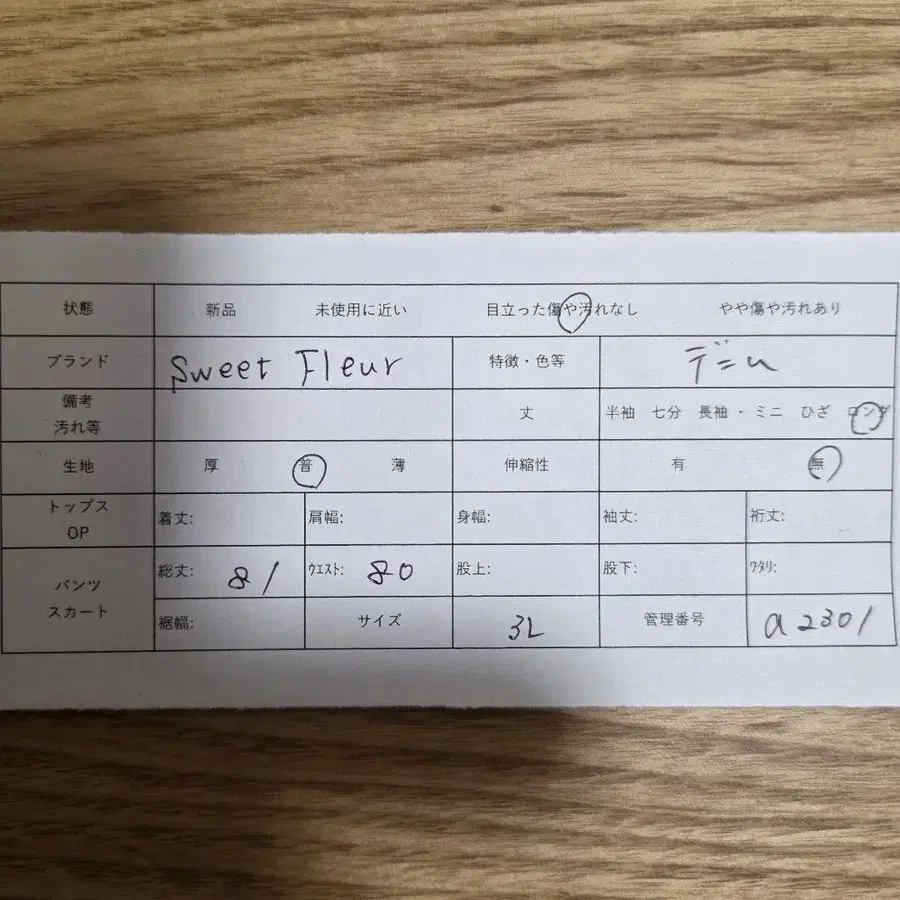 状態 新品 未使用に近い 目立った傷や汚れなし やや傷や汚れあり
ブランド Sweet Fleur 特徴・色等 デニム
備考 汚れ等 丈 半袖 七分 長袖・ミニ ひざ ロング
生地 厚 普 薄 伸縮性 有 無
トップス OP 着丈: 肩幅: 身幅: 袖丈: 裄丈:
パンツ スカート 総丈: 81 ウエスト: 80 股上: 股下: ワタリ:
裾幅: サイズ 3L 管理番号 a2301